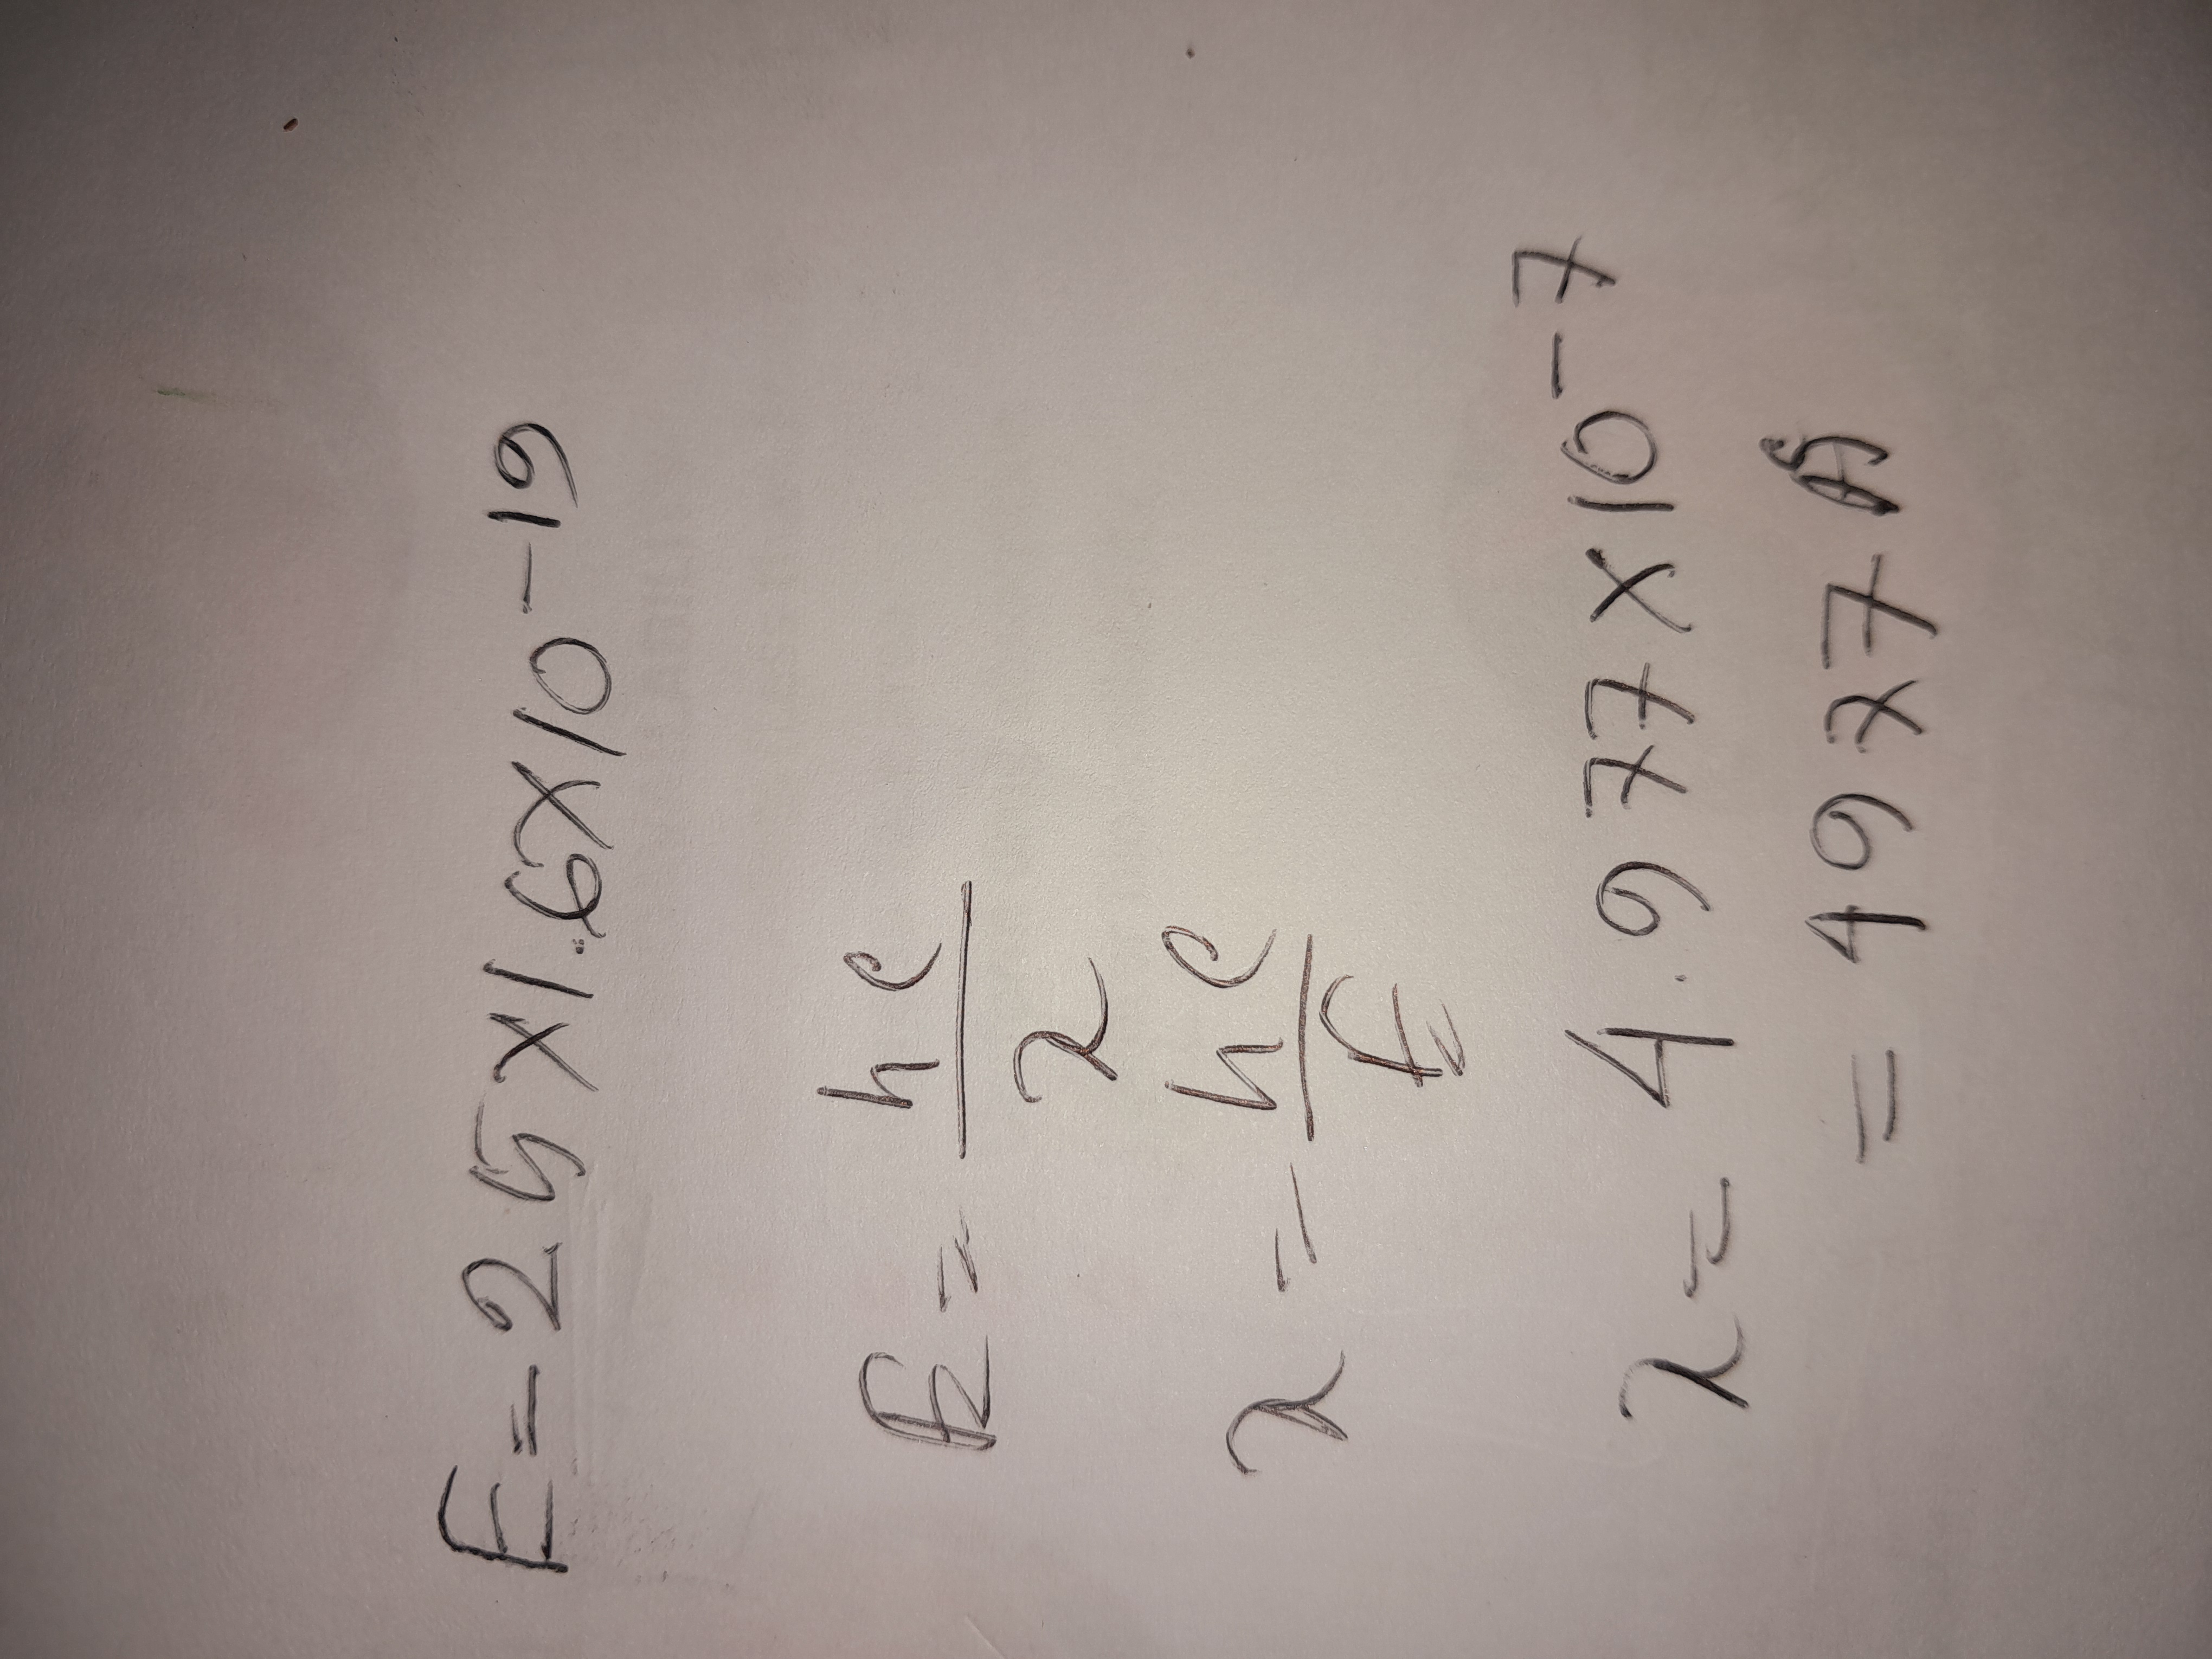 E=25×1.6×10⁻¹⁹
E = hc/λ
λ = hc/E
λ= 4.977×10⁻⁷
= 4977 Å